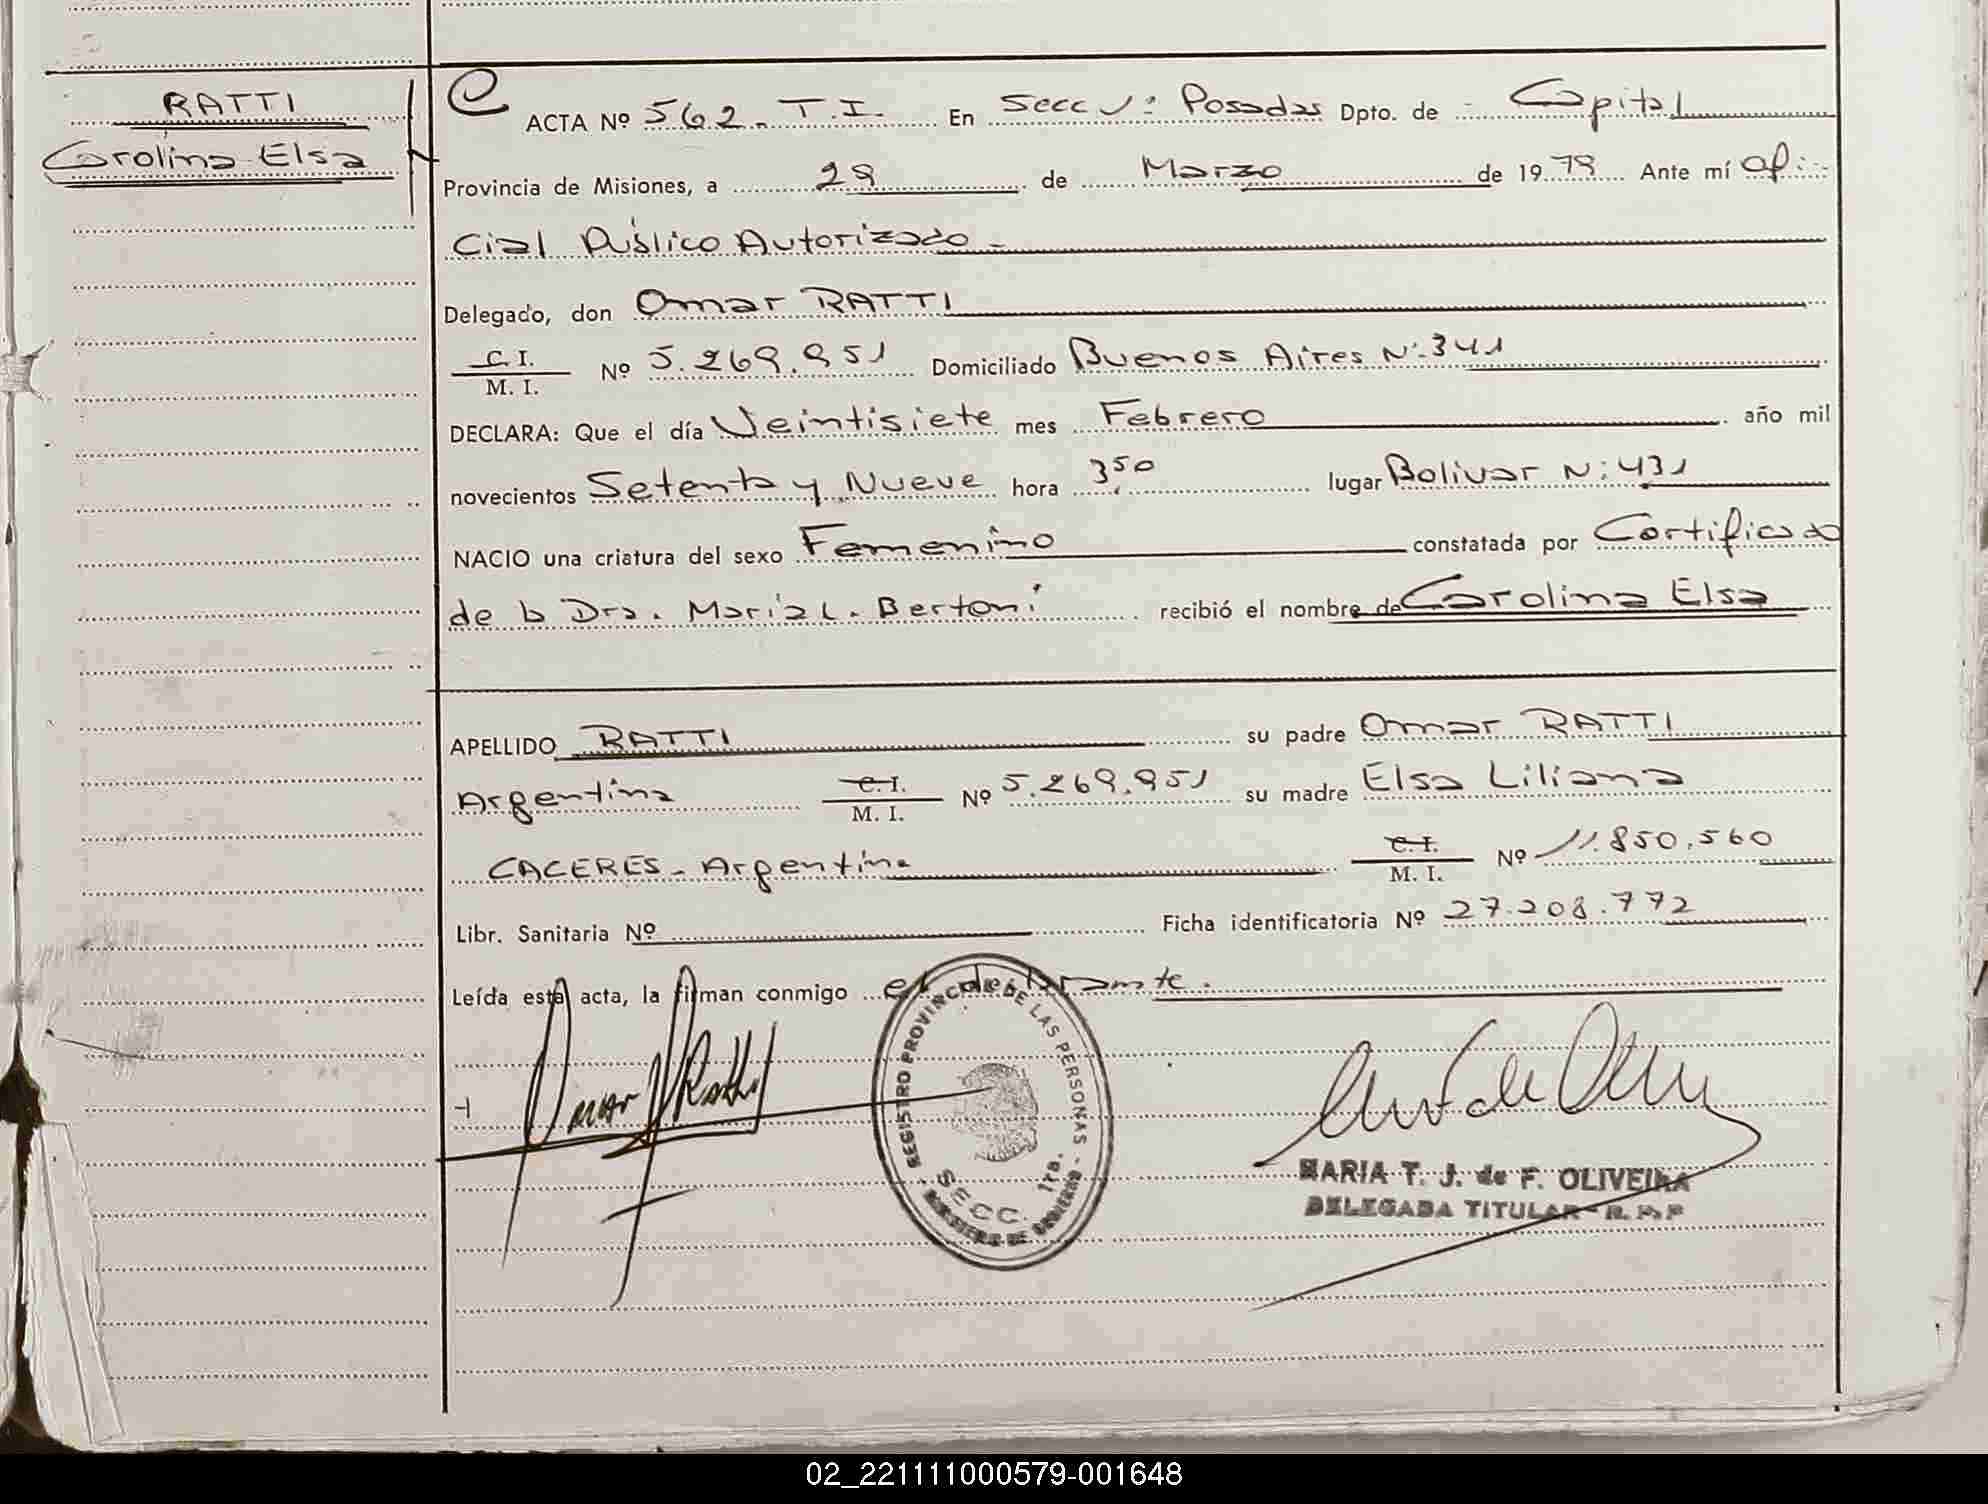 RATTI
Carolina Elsa
ACTA Nº 562. T.I. En Secc 1ª Posadas Dpto. de Capital
Provincia de Misiones, a 28 de Marzo de 1979 Ante mí Ofi-
cial Público Autorizado -
Delegado, don Omar RATTI
C. I.
M. I. Nº 5.269.951 Domiciliado Buenos Aires Nº 341
DECLARA: Que el día Veintisiete mes Febrero año mil
novecientos Setenta y Nueve hora 3,50 lugar Bolivar Nº 431
NACIO una criatura del sexo Femenino constatada por Certificado
de la Dra. Maria L. Bertoni recibió el nombre de Carolina Elsa
APELLIDO RATTI su padre Omar RATTI
Argentina C. I.
M. I. Nº 5.269.951 su madre Elsa Liliana
CACERES - Argentina C. I.
M. I. Nº 11.850.560
Libr. Sanitaria Nº Ficha identificatoria Nº 27.208.772
Leída esta acta, la firman conmigo el declarante.
Omar Ratti
REGISTRO PROVINCIAL DE LAS PERSONAS - MINISTERIO DE GOBIERNO -
SECC. 1ra.
MARIA T. J. de F. OLIVEIRA
DELEGADA TITULAR - R. P. P
02_221111000579-001648